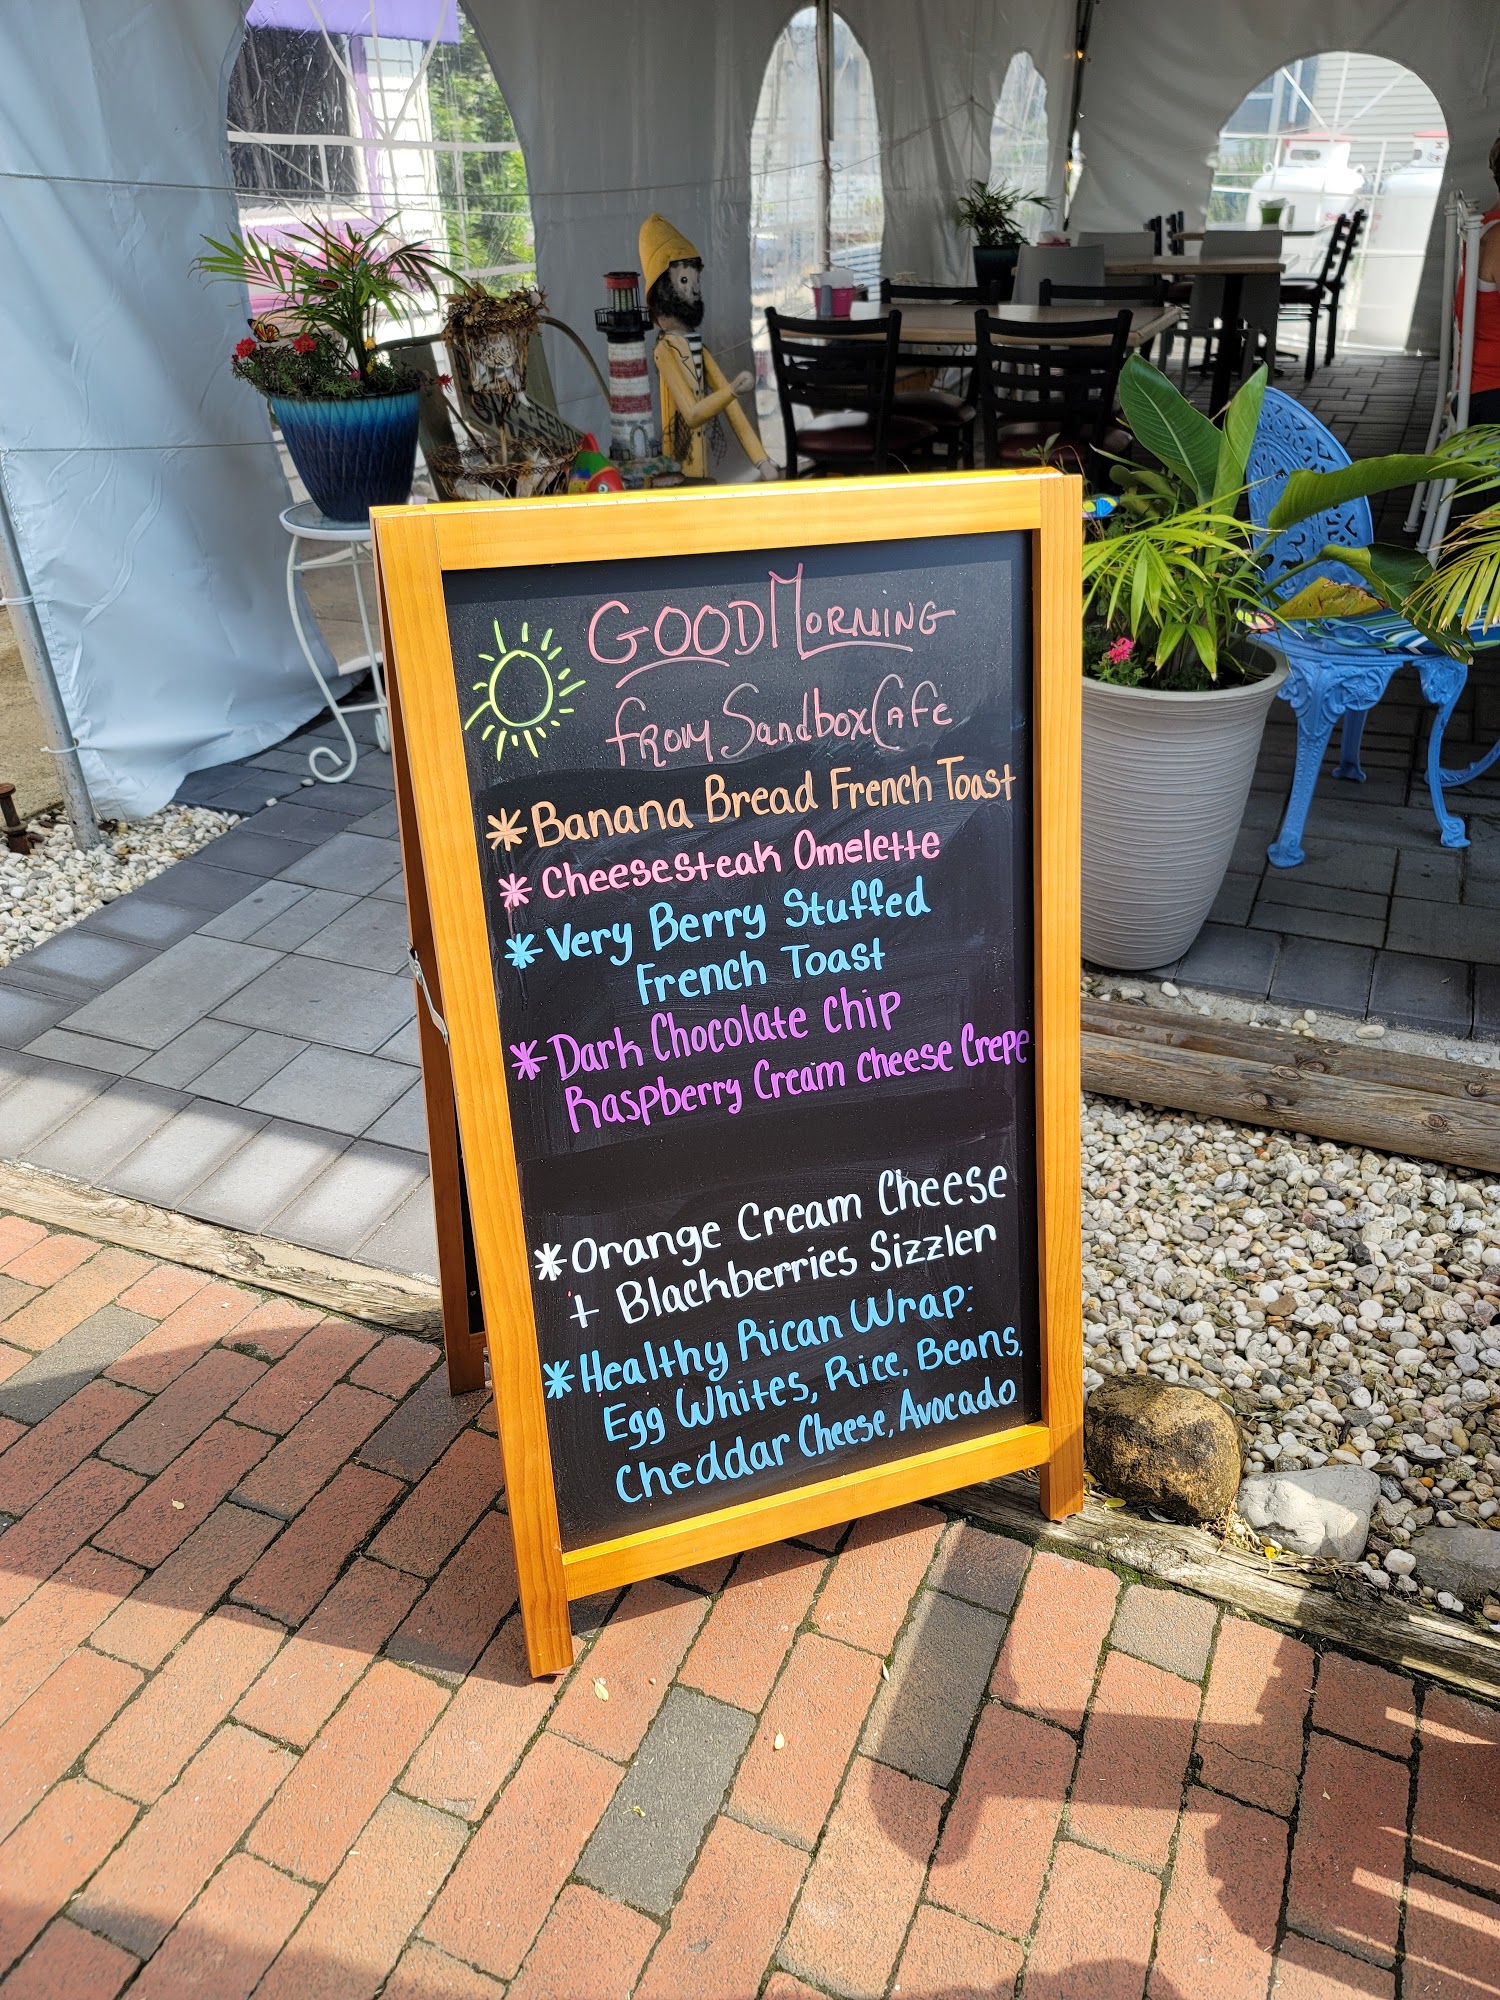 GOOD MORNING
FROM Sandbox CAFE
* Banana Bread French Toast
* Cheesesteak Omelette
* Very Berry Stuffed
French Toast
* Dark Chocolate Chip
Raspberry Cream Cheese Crepe
* Orange Cream Cheese
+ Blackberries Sizzler
* Healthy Rican Wrap:
Egg Whites, Rice, Beans,
Cheddar Cheese, Avocado